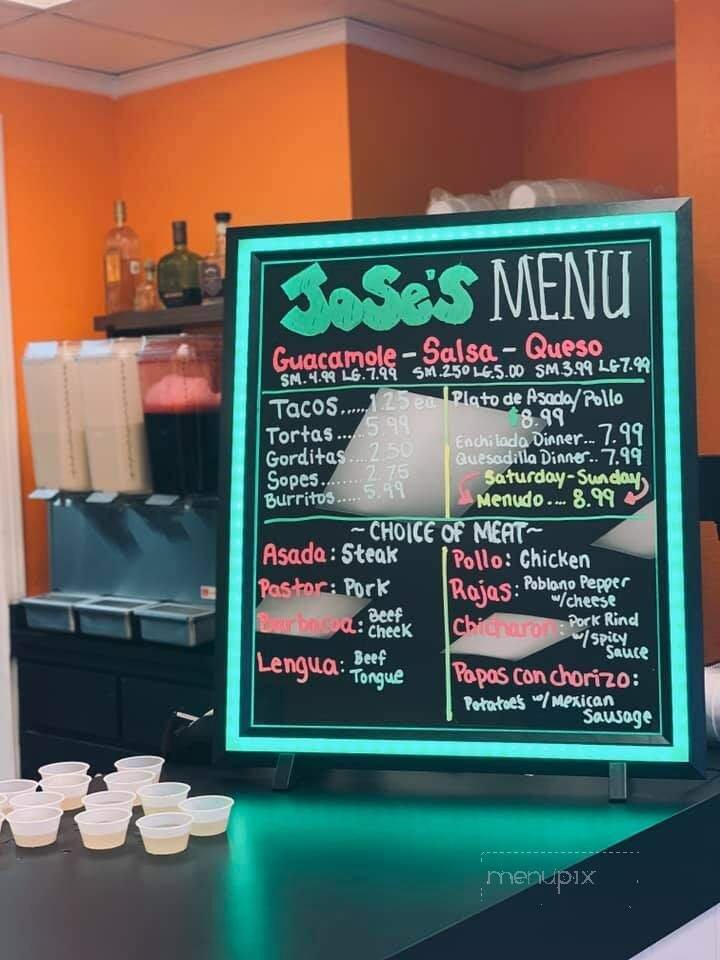 JoSe's MENU
Guacamole - Salsa - Queso
SM. 4.99 LG. 7.99 SM. 2.50 LG. 5.00 SM. 3.99 LG 7.99
Tacos.....1.25 ea
Tortas.....5.99
Gorditas....2.50
Sopes.......2.75
Burritos.....5.99
Plato de Asada/Pollo
8.99
Enchilada Dinner... 7.99
Quesadilla Dinner.. 7.99
Saturday - Sunday
Menudo.... 8.99
~ CHOICE OF MEAT ~
Asada: Steak
Pastor: Pork
Barbacoa: Beef
Cheek
Lengua: Beef
Tongue
Pollo: Chicken
Rajas: Poblano Pepper
w/cheese
Chicharon: Pork Rind
w/spicy
Sauce
Papas con chorizo:
Potatoe's w/ Mexican
Sausage
menupix